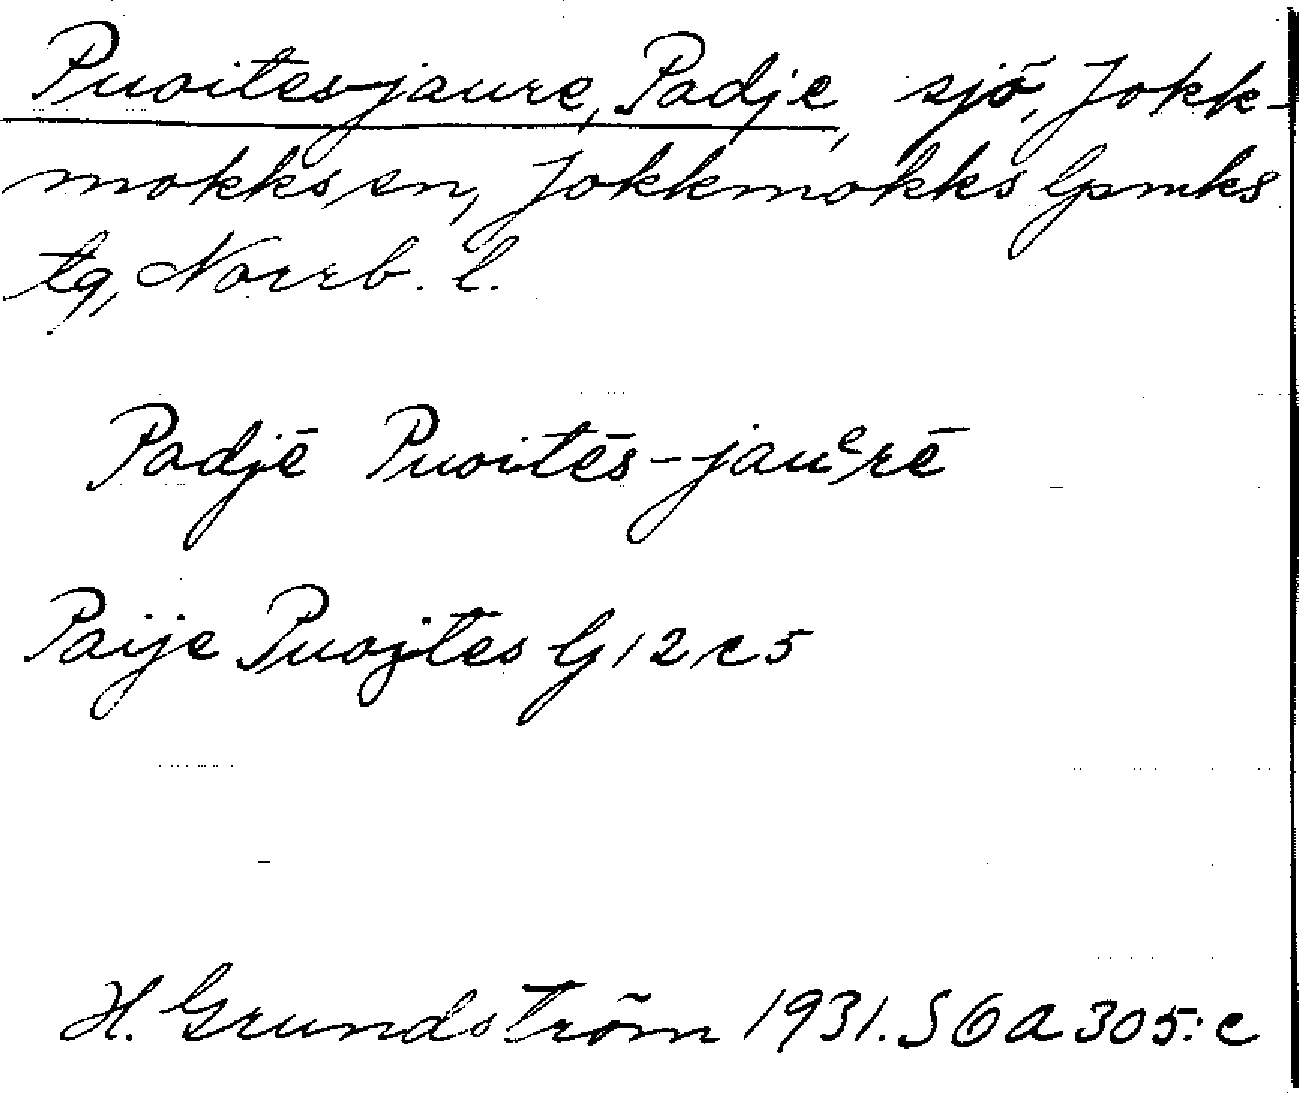 Puoites-jaure, Padje, sjö, Jokk-
mokks sn, Jokkmokks lpmks
tg, Norrb. l.
Padjē Puoitēs-jauᵉrē
Paije Puojtes G 12 c 5
H. Grundström 1931. SOA 305:c